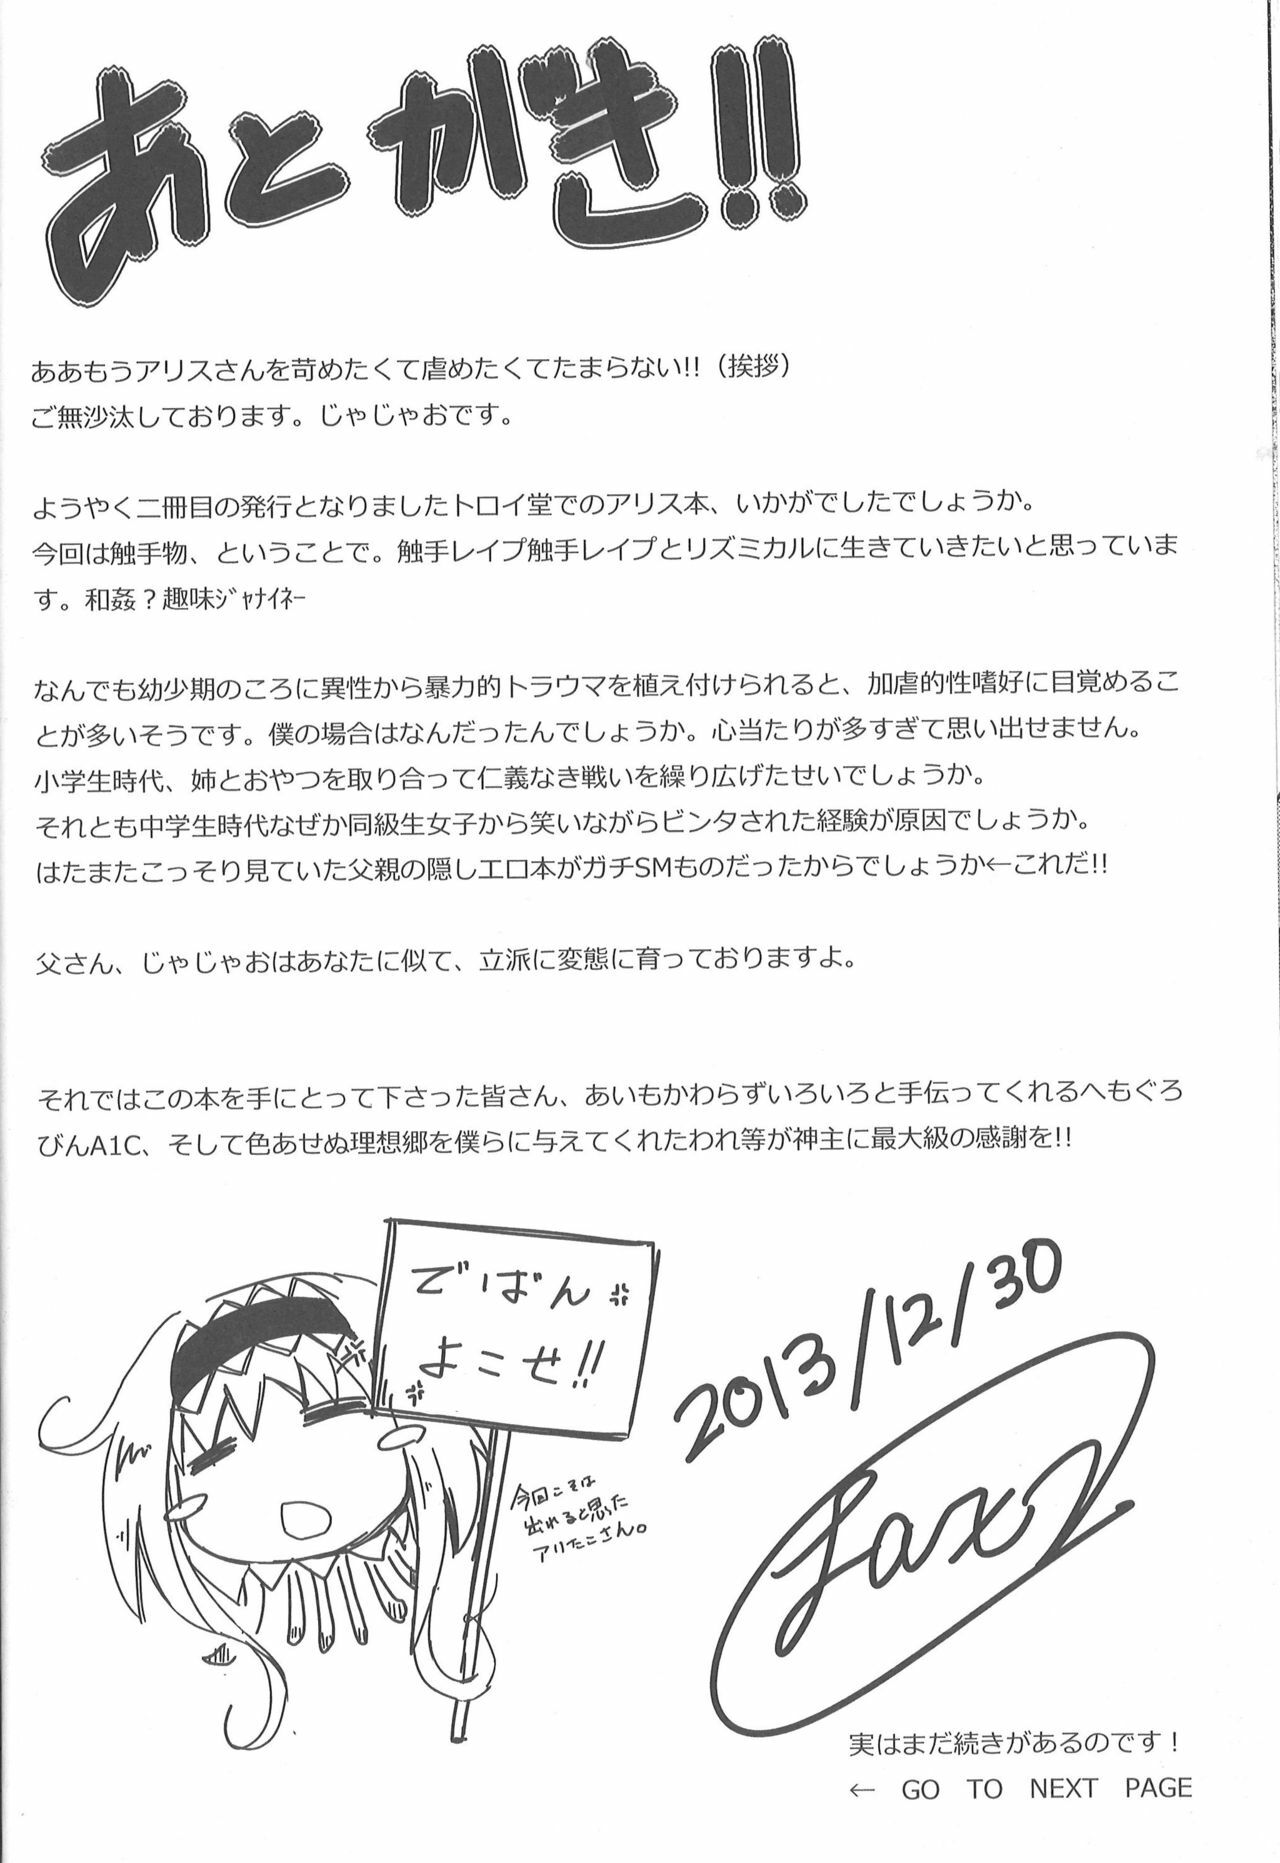 あとがき!!
ああもうアリスさんを苛めたくて虐めたくてたまらない!!（挨拶）
ご無沙汰しております。じゃじゃおです。
ようやく二冊目の発行となりましたトロイ堂でのアリス本、いかがでしたでしょうか。
今回は触手物、ということで。触手レイプ触手レイプとリズミカルに生きていきたいと思っていま
す。和姦？趣味ｼﾞｬﾅｲﾈｰ
なんでも幼少期のころに異性から暴力的トラウマを植え付けられると、加虐的性嗜好に目覚めるこ
とが多いそうです。僕の場合はなんだったんでしょうか。心当たりが多すぎて思い出せません。
小学生時代、姉とおやつを取り合って仁義なき戦いを繰り広げたせいでしょうか。
それとも中学生時代なぜか同級生女子から笑いながらビンタされた経験が原因でしょうか。
はたまたこっそり見ていた父親の隠しエロ本がガチSMものだったからでしょうか←これだ!!
父さん、じゃじゃおはあなたに似て、立派に変態に育っておりますよ。
それではこの本を手にとって下さった皆さん、あいもかわらずいろいろと手伝ってくれるへもぐろ
びんA1C、そして色あせぬ理想郷を僕らに与えてくれたわれ等が神主に最大級の感謝を!!
でばん
よこせ!!
今回こそは
出れると思った
アリたこさん。
2013/12/30
実はまだ続きがあるのです！
← GO TO NEXT PAGE